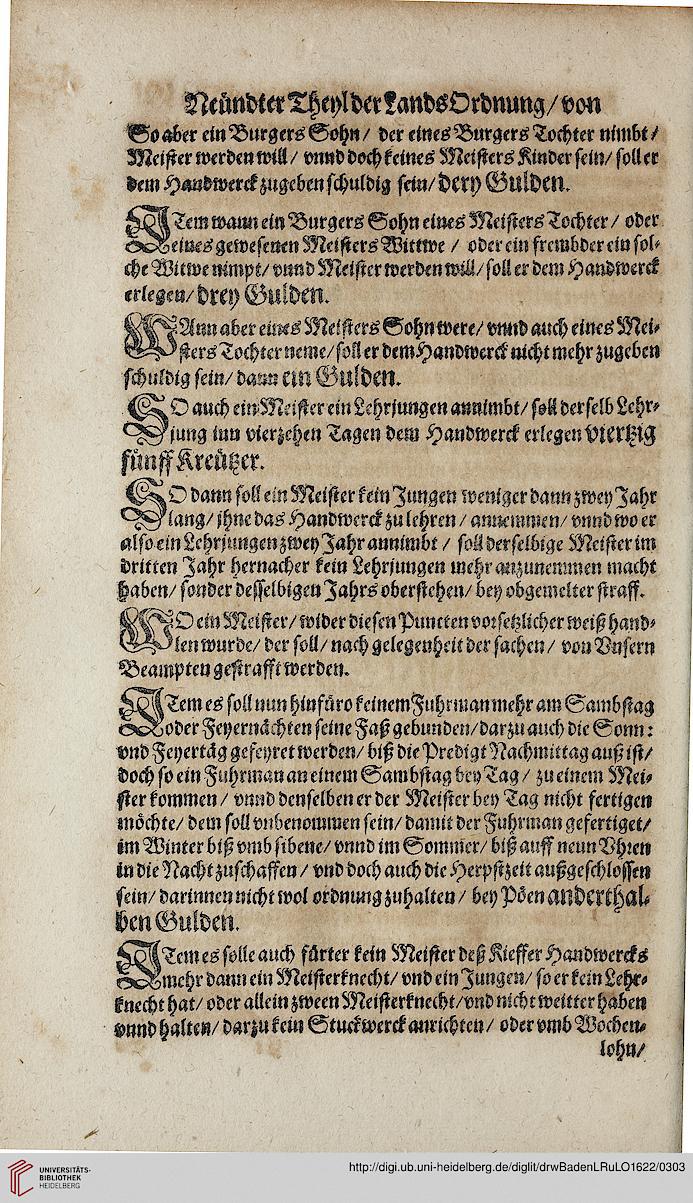 Neündter Theyl der Lands Ordnung/ von
So aber ein Burgers Sohn/ der eines Burgers Tochter nimbt/
Meister werden will/ vnnd doch keines Meisters Kinder sein/ soll er
dem Handwerck zugeben schuldig sein/ drey Gulden.
ITem wann ein Burgers Sohn eines Meisters Tochter/ oder
eines gewesenen Meisters Wittwe/ oder ein frembder ein sol-
che Witwe nimpt/ vnnd Meister werden will/ soll er dem Handwerck
erlegen/ drey Gulden.
WAnn aber eines Meisters Sohn were/ vnnd auch eines Mei-
sters Tochter neme/ soll er dem Handwerck nicht mehr zugeben
schuldig sein/ dann ein Gulden.
SO auch ein Meister ein Lehrjungen annimbt/ soll derselb Lehr-
jung inn vierzehen Tagen dem Handwerck erlegen viertzig
fünff Kreützer.
SO dann soll ein Meister kein Jungen weniger dann zwey Jahr
lang/ ihne das Handwerck zu lehren/ annemmen/ vnnd wo er
also ein Lehrjungen zwey Jahr annimbt/ soll derselbige Meister im
dritten Jahr hernacher kein Lehrjungen mehr anzunemmen macht
haben/ sonder desselbigen Jahrs oberstehen/ bey obgemelter straff.
WO ein Meister/ wider diesen Puncten vorsetzlicher weiß hand-
len wurde/ der soll/ nach gelegenheit der sachen/ von Vnsern
Beampten gestrafft werden.
ITem es soll nun hinfüro keinem Fuhrman mehr am Sambstag
oder Feyernächten seine Faß gebunden/ darzu auch die Sonn:
vnd Feyertäg gefeyret werden/ biß die Predigt Nachmittag auß ist/
doch so ein Fuhrman an einem Sambstag bey Tag/ zu einem Mei-
ster kommen/ vnnd denselben er der Meister bey Tag nicht fertigen
möchte/ dem soll vnbenommen sein/ damit der Fuhrman gefertiget/
im Winter biß vmb sibene/ vnnd im Sommer/ biß auff neun Vhren
in die Nacht zuschaffen/ vnd doch auch die Herpstzeit außgeschlossen
sein/ darinnen nicht wol ordnung zuhalten/ bey Pöen anderthal-
ben Gulden.
ITem es solle auch fürter kein Meister deß Kieffer Handwercks
mehr dann ein Meisterknecht/ vnd ein Jungen/ so er kein Lehr-
knecht hat/ oder allein zween Meisterknecht/ vnd nicht weitter haben
vnnd halten/ darzu kein Stuckwerck anrichten/ oder vmb Wochen-
lohn/
UNIVERSITÄTS-
BIBLIOTHEK
HEIDELBERG
http://digi.ub.uni-heidelberg.de/diglit/drwBadenLRuLO1622/0303